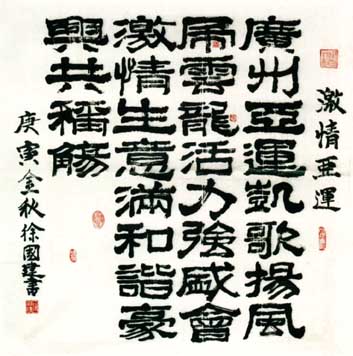 激情亞運
廣州亞運凱歌揚風
虎雲龍活力強盛會
激情生意滿和諧豪
興共稱觴
庚寅金秋徐國建書